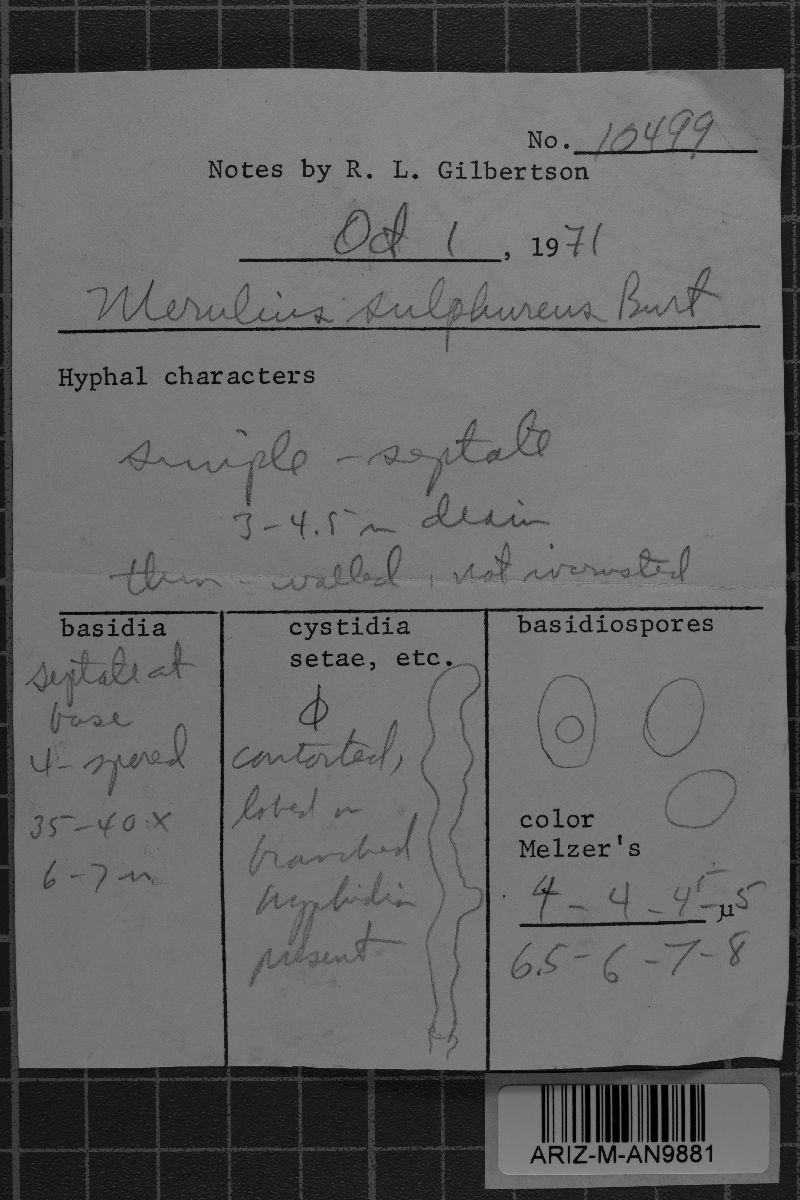 No. 10499
Notes by R. L. Gilbertson
Oct 1, 1971
Merulius sulphureus Burt
Hyphal characters
simple-septate
3-4.5 µ diam
thin-walled, not incrusted
basidia
septate at
base
4-spored
35-40 x
6-7 µ
cystidia
setae, etc.
ϕ
contorted,
lobed or
branched
hyphidia
present
basidiospores
color
Melzer's
4 - 4 - 4.5 - µ 5
6.5 - 6 - 7 - 8
ARIZ-M-AN9881